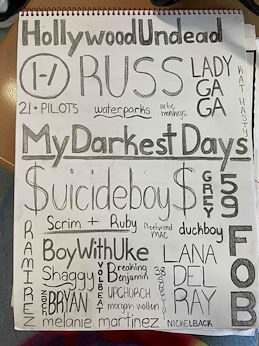 Hollywood Undead
RUSS
LADY GAGA
KAT HASTY
21 • PILOTS
waterparks
artic monkeys
My Darkest Days
$uicideboy$
GREY
59
Scrim + Ruby
fleetwood MAC
duckboy
RAMIREZ
BoyWithUke
LANA DEL RAY
FOB
Shaggy
VOLBEAT
Breaking Benjamin
38
ZACH
BRYAN
UPCHURCH
morgan wallen
melanie martinez
NICKELBACK